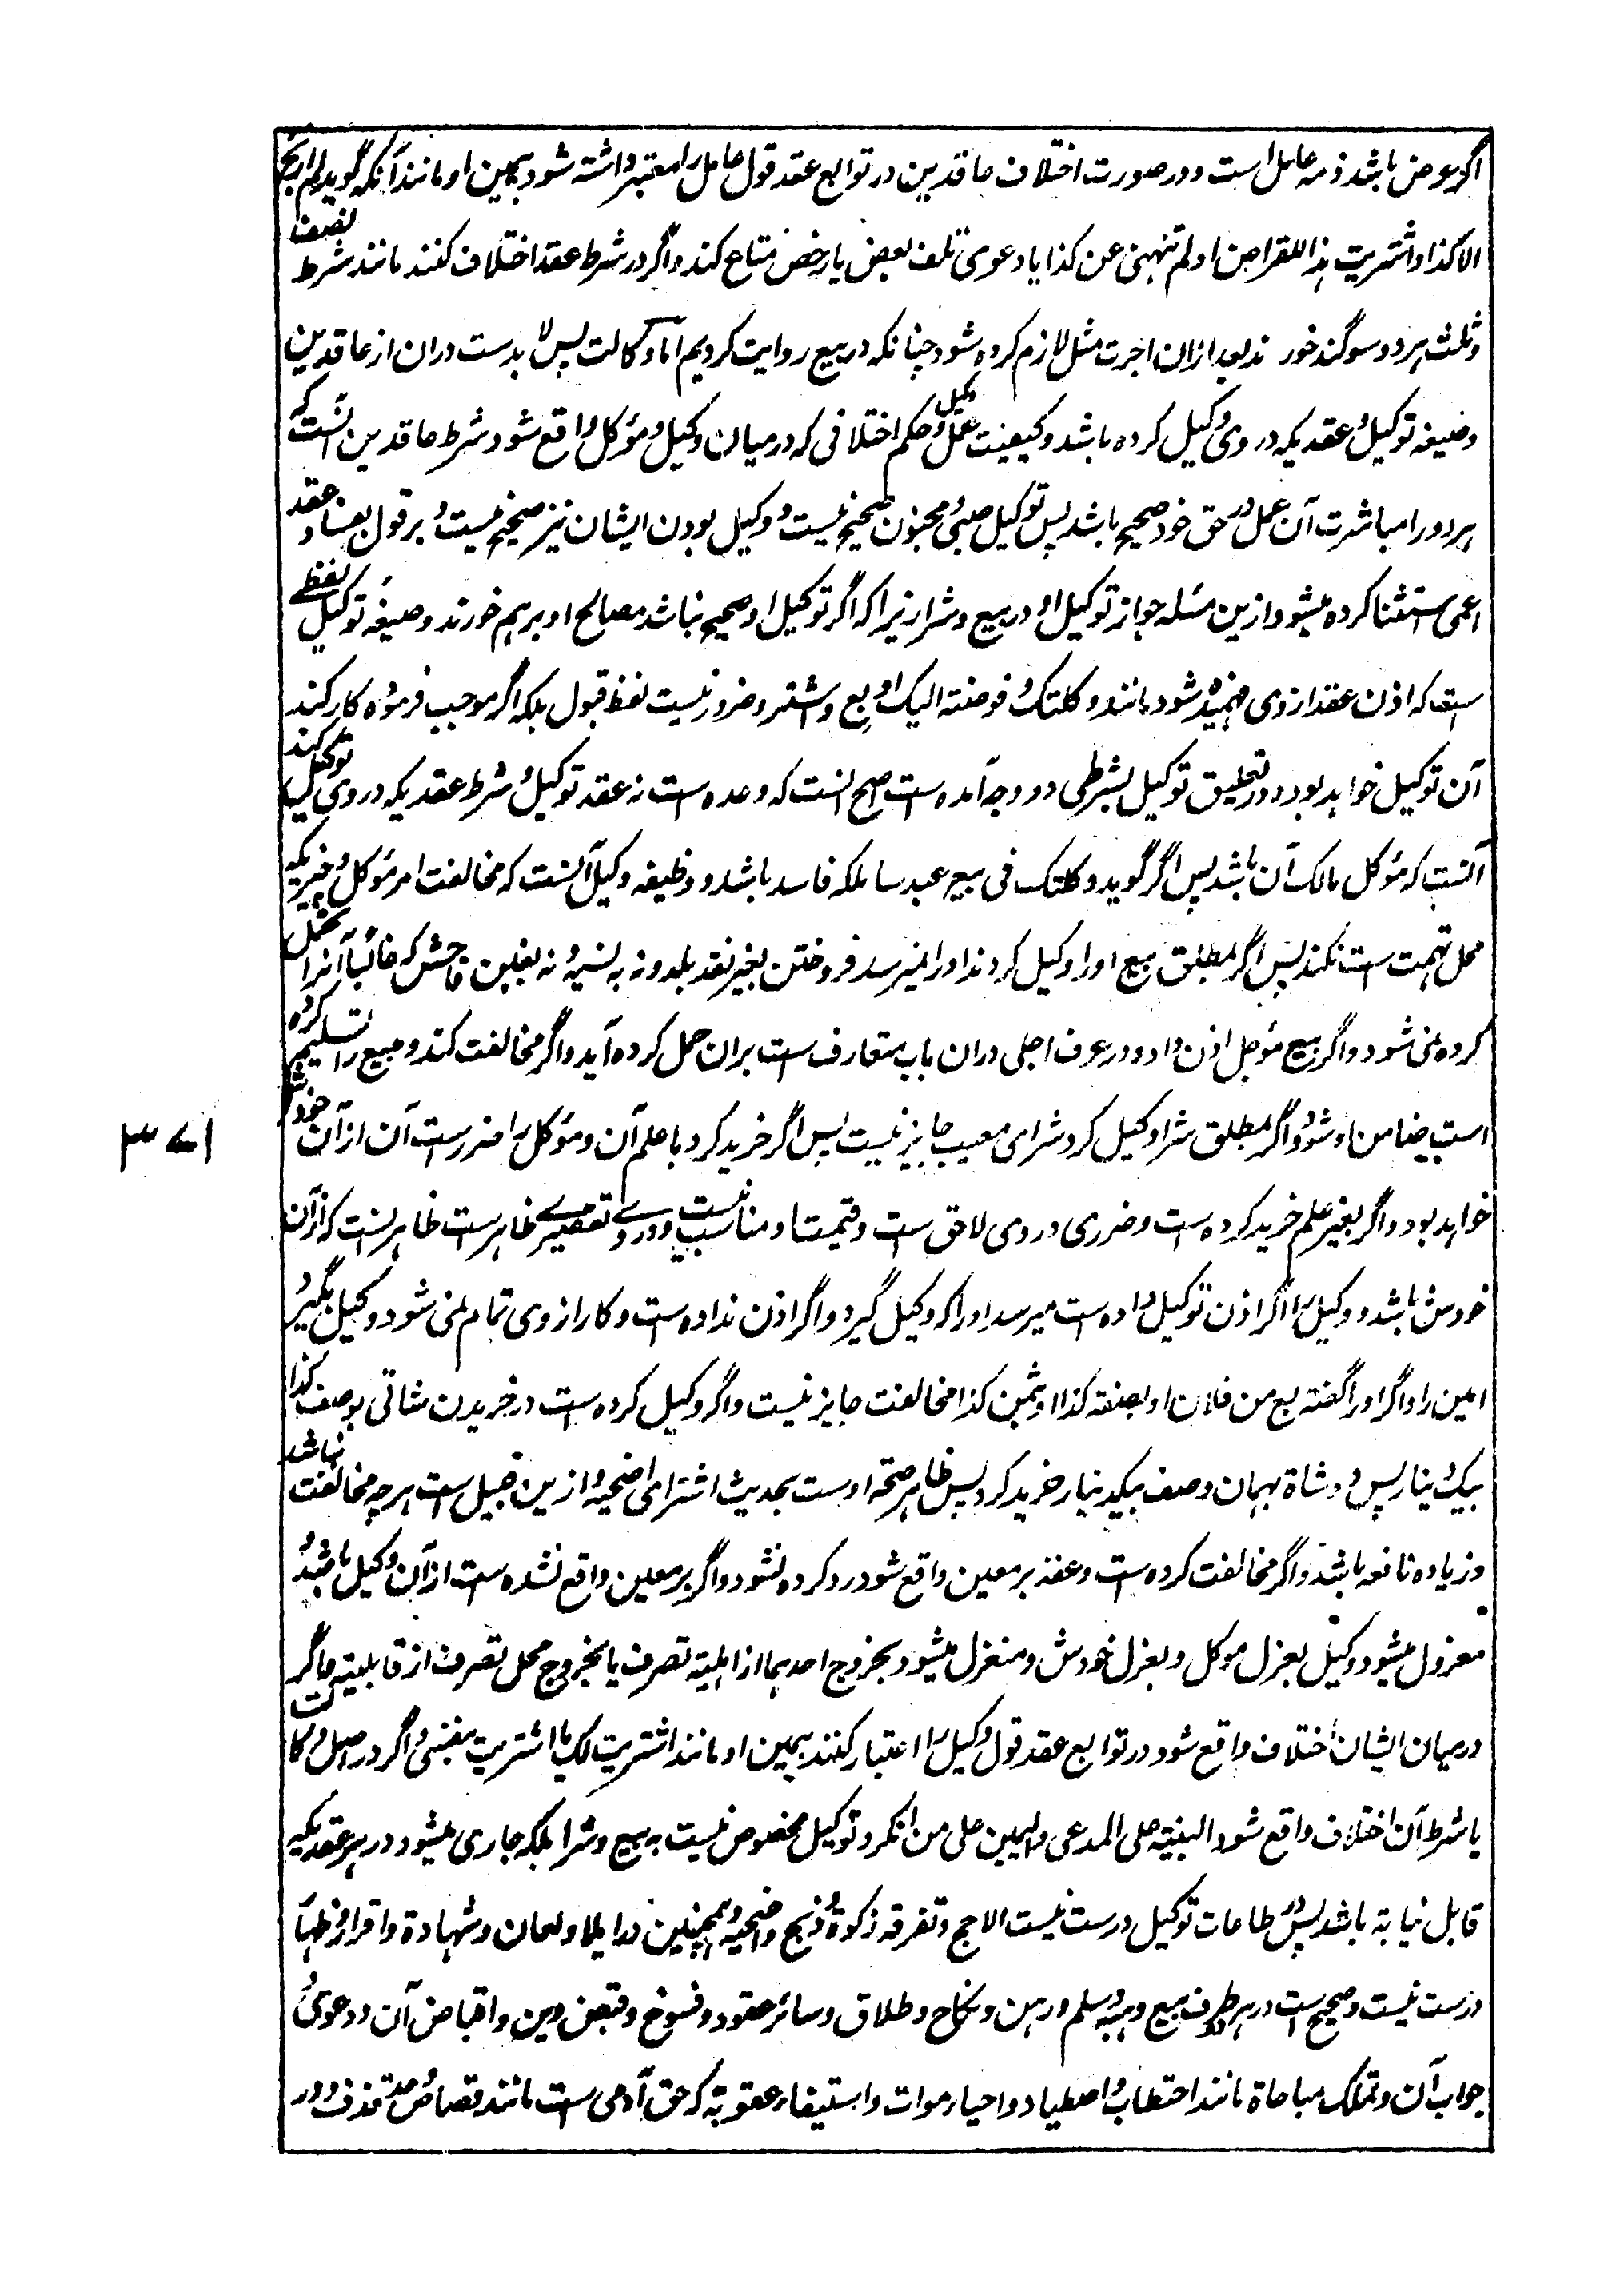 اگر عوض باشد ذمه عامل است و در صورت اختلاف عاقدین در توابع عقد قول عامل را معتبر داشته شود بیمین او مانند آنکه گوید لم اربح
الا کذا و اشتریت هذا للقراض او لم تنهنی عن کذا یا دعوی تلف بعض یا رخص متاع کند و اگر در شرط عقد اختلاف کنند مانند شرط نصف
و ثلث هر دو سوگند خورند بعد ازان اجرت مثل لازم کرده شود چنانکه در بیع روایت کردیم اما وکالت پس لا بدست دران از عاقدین
و صیغه توکیل و عقدیکه در وی وکیل کرده باشد و کیفیت عمل وکیل و حکم اختلافی که در میان وکیل و مؤکل واقع شود شرط عاقدین آنست که
هر دو را مباشرت آن عمل در حق خود صحیح باشد پس توکیل صبی و مجنون صحیح نیست و وکیل بودن ایشان نیز صحیح نیست و بر قول بفساد عقد
اعمی استثنا کرده میشود ازین مسئله جواز توکیل او در بیع و شرا زیرا که اگر توکیل او صحیح نباشد مصالح او برهم خورند و صیغه توکیل لفظے
ست که اذن عقد از وی فهمیده شود مانند وکلتک و فوضته الیک او بع و اشتر و ضرور نیست لفظ قبول بلکه اگر موجب فرموده کار کند
آن توکیل خواهد بود و در تعلیق توکیل بشرطی دو وجه آمده است اصح آنست که وعده است نه عقد توکیل و شرط عقدیکه در وی توکیل کند
آنست که مؤکل مالک آن باشد پس اگر گوید وکلتک فی بیع عبد سا ملکه فاسد باشد و وظیفه وکیل آنست که مخالفت امر مؤکل و چیزیکه
محل تهمت ست نکند پس اگر مطلق بیع او را وکیل کردند او را نمیرسد فروختن بغیر نقد بلد و نه به نسیه و نه بغبن فاحش که غالباً آنرا تحمل
کرده نمی شود و اگر ببیع مؤجل اذن داد و در عرف اجلی دران باب متعارف ست بران حمل کرده آید و اگر مخالفت کند و مبیع را تسلیم کرده
است ضامن او شود و اگر بمطلق شرا وکیل کرد شرای معیب جایز نیست پس اگر خرید کرد با علم آن و مؤکل را ضرر ست آن از آن خودش
خواهد بود و اگر بغیر علم خرید کرده ست و ضرری در وی لاحق ست و قیمت او مناسب نیست و در وے تقصیرے ظاهر ست ظاهر آنست که از آن
خودش باشد و وکیل را اگر اذن توکیل داده ست میرسد او را که وکیل گیرد و اگر اذن نداده ست و کار از وی تمام نمی شود وکیل بگیرد
امین را و اگر او را گفته بع من فلان او بصفته کذا او بثمن کذا مخالفت جایز نیست و اگر وکیل کرده ست در خریدن شاتی بوصف کذا
بیک دینار پس دو شاة بهمان وصف بیکدینار خرید کرد پس ظاهر صحة اوست بحدیث اشترای اضحیه و ازین قبیل ست هر چه مخالفت نباشد
و زیاده نافعه باشد و اگر مخالفت کرده ست و عقد بر معین واقع شود رد کرده نشود و اگر بر معین واقع نشده ست از آن وکیل باشد و
معزول میشود وکیل بعزل موکل و بعزل خودش و منعزل میشود بخروج احدهما از اهلیة تصرف یا بخروج محل تصرف از قابلیة و اگر
درمیان ایشان اختلاف واقع شود در توابع عقد قول وکیل را اعتبار کنند بیمین او مانند اشتریت لک یا اشتریت بنفسی و اگر در اصل وکالت
یا شرط آن اختلاف واقع شود البینة علی المدعی و الیمین علی من انکر و توکیل مخصوص نیست به بیع و شرا بلکه جاری میشود در هر عقدیکه
قابل نیابة باشد پس در طاعات توکیل درست نیست الا حج و تفرقه زکوة و ذبح و اضحیه و همچنین در ایلا و لعان و شهادة و اقرار و ظهار
درست نیست و صحیح ست در هر دو طرف بیع و هبه و سلم و رهن و نکاح و طلاق و سائر عقود و فسوخ و قبض دین و اقباض آن و دعوی و
جواب آن و تملک مباحاة مانند احتطاب و اصطیاد و احیاء موات و استیفاء عقوبة که حق آدمی ست مانند قصاص و حد قذف و در
۳۷۱